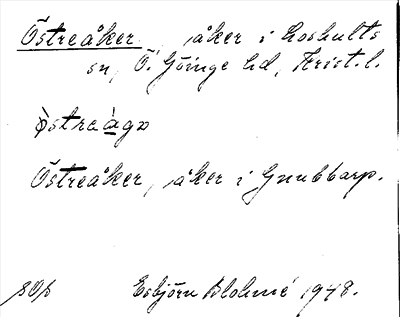 Östreåker, åker i Loshults
sn, Ö. Göinge hd, Krist. l.
Östreåker, åker i Gnubbarp.
Esbjörn Blohmé 1948.